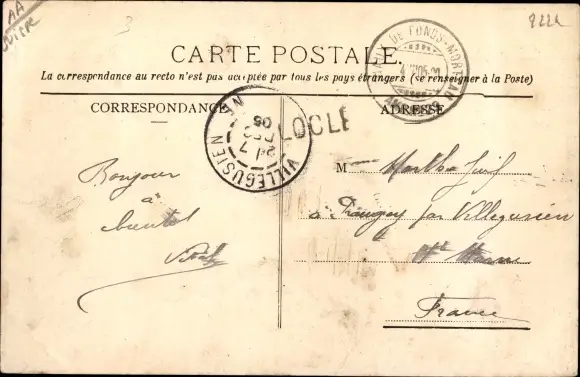 AA
SUISSE
3
CARTE POSTALE.
La correspondance au recto n'est pas acceptée par tous les pays étrangers (se renseigner à la Poste)
CORRESPONDANCE
ADRESSE
LOCLE
VILLEGUSIEN
7
DEC
05
DE FONDS-MORTEAU
Bonjour
à
bientot
M
Martha
à Prangey par Villegusien
Hte Marne
France